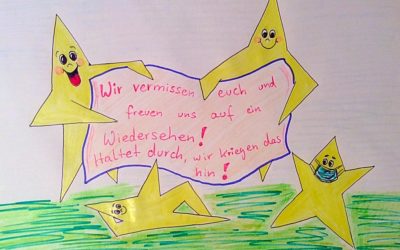 Wir vermissen euch und
freuen uns auf ein
Wiedersehen!
Haltet durch, wir kriegen das
hin!